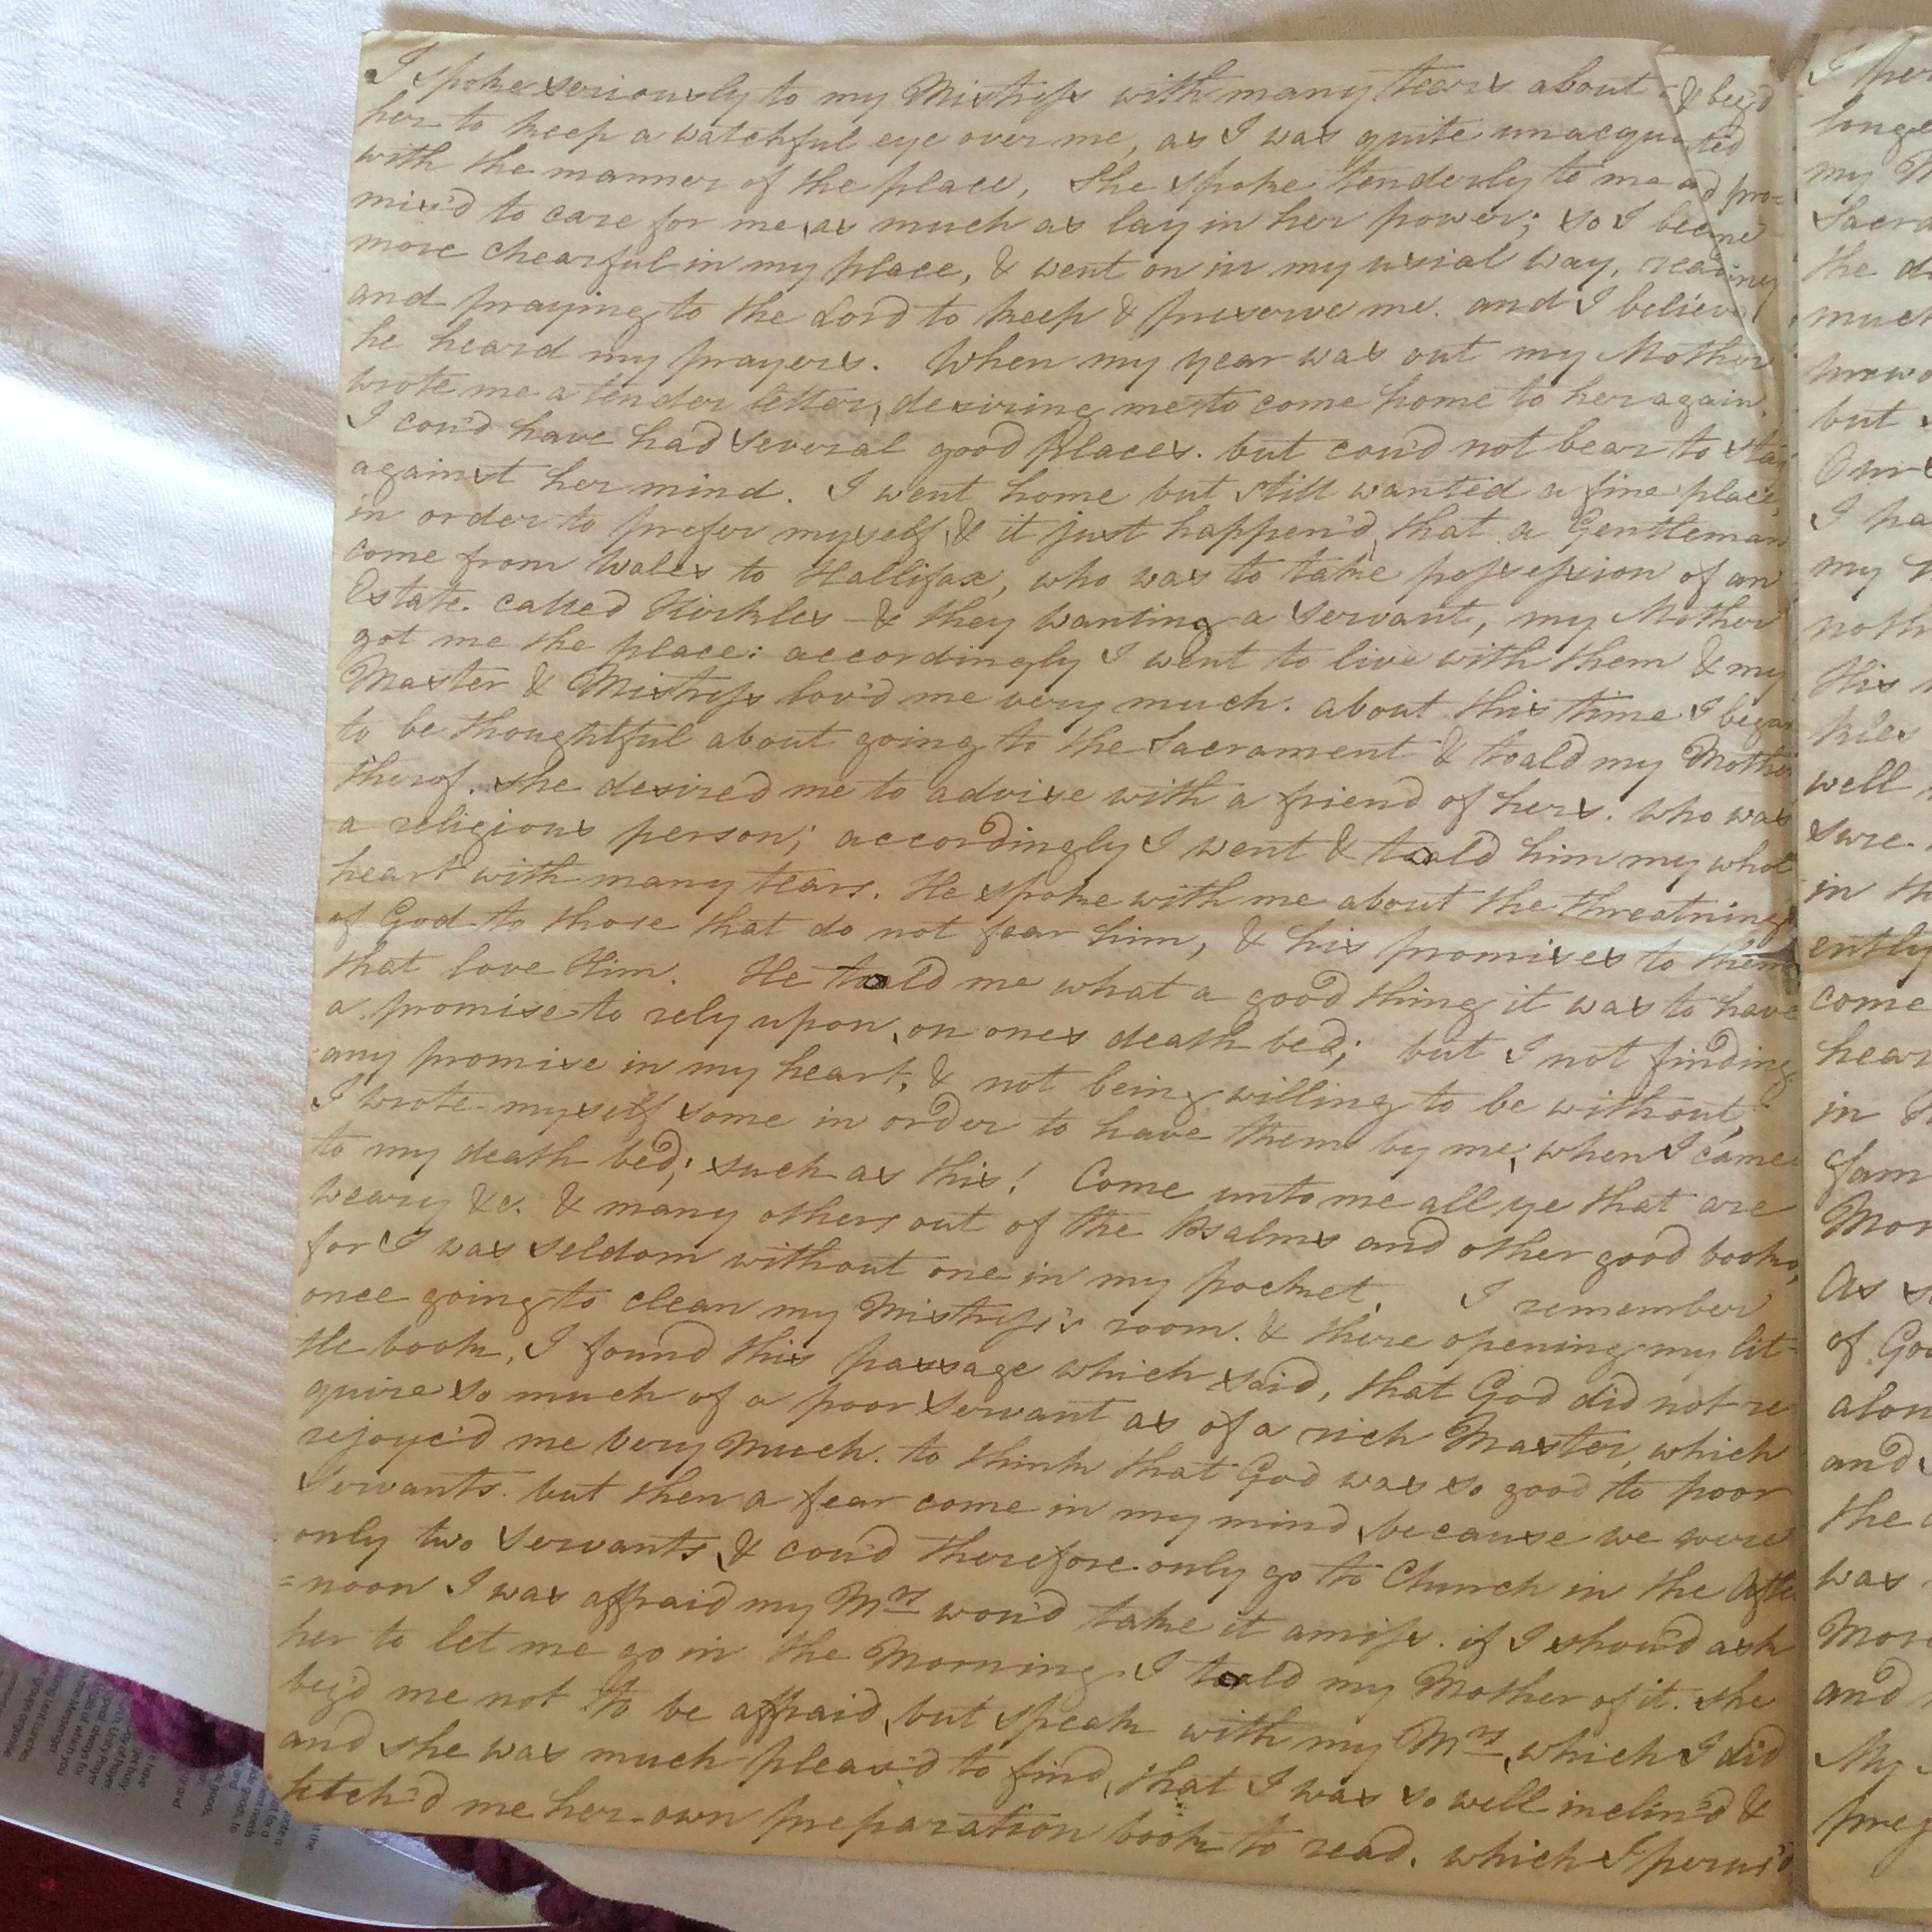 I spoke seriously to my Mistress with many tears about & beg'd
her to keep a watchful eye over me, as I was quite unacquated
with the manner of the place, She spoke tenderly to me and pro=
mis'd to care for me, as much as lay in her power; so I became
more chearful in my place, & went on in my usial way, reading
and praying to the Lord to keep & preserve me. and I believe
he heard my prayers. When my year was out my Mother
wrote me a tender letter, desiring me to come home to her again.
I cou'd have had several good Places. but cou'd not bear to stay
against her mind. I went home but still wanted a fine place,
in order to prefer myself, & it just happen'd, that a Gentleman
come from Wales to Hallifax, who was to take possession of an
Estate. called Kirkles - & they wanting a servant, my Mother
got me the place: accordingly I went to live with them & my
Master & Mistress lov'd me very much. about this time I began
to be thoughtful about going to the Sacrament & toald my Mother
therof. she desired me to advise with a friend of hers. who was
a religious person; accordingly I went & toald him my whole
heart with many tears. He spoke with me about the threatnings
of God to those that do not fear him, & his promises to them
that love Him. He toald me what a good thing it was to have
a promise to rely upon, on ones death bed; but I not finding
any promise in my heart, & not being willing to be without,
I wrote myself some in order to have them by me, when I came
to my death bed; such as this! Come unto me all ye that are
weary &c. & many others out of the Psalms and other good books,
for I was seldom without one in my pocket. I remember
once going to clean my Mistress's room. & there opening my lit=
tle book, I found this passage which said, that God did not re
quire so much of a poor servant as of a rich Master, which
rejoyc'd me very much. to think that God was so good to poor
Servants. but then a fear come in my mind, because we were
only two servants, & cou'd therefore only go to Church in the After
=noon I was affraid my Mrs wou'd take it amiss. if I shou'd ask
her to let me go in the Morning. I toald my Mother of it. she
beg'd me not to be affraid, but speak with my Mrs, which I did
and she was much pleas'd to find, that I was so well inclin'd &
fetch'd me her own preparation book to read. which I perus'd
I
longe
my
Sacra
the
much
but
I ha
my
noth
His
kles
well
sure.
in th
ently
come
hear
in
fam
Mor
As
of God
alon
and
the
was
More
and
My